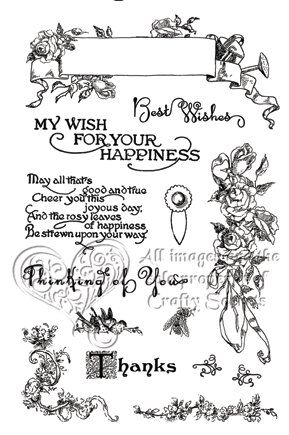 Best Wishes
MY WISH
FOR YOUR
HAPPINESS
May all that's
good and true
Cheer you this
joyous day,
And the rosy leaves
of happiness
Be strewn upon your way.
All images are the
Thinking of You
Property of
Crafty Secrets
Thanks